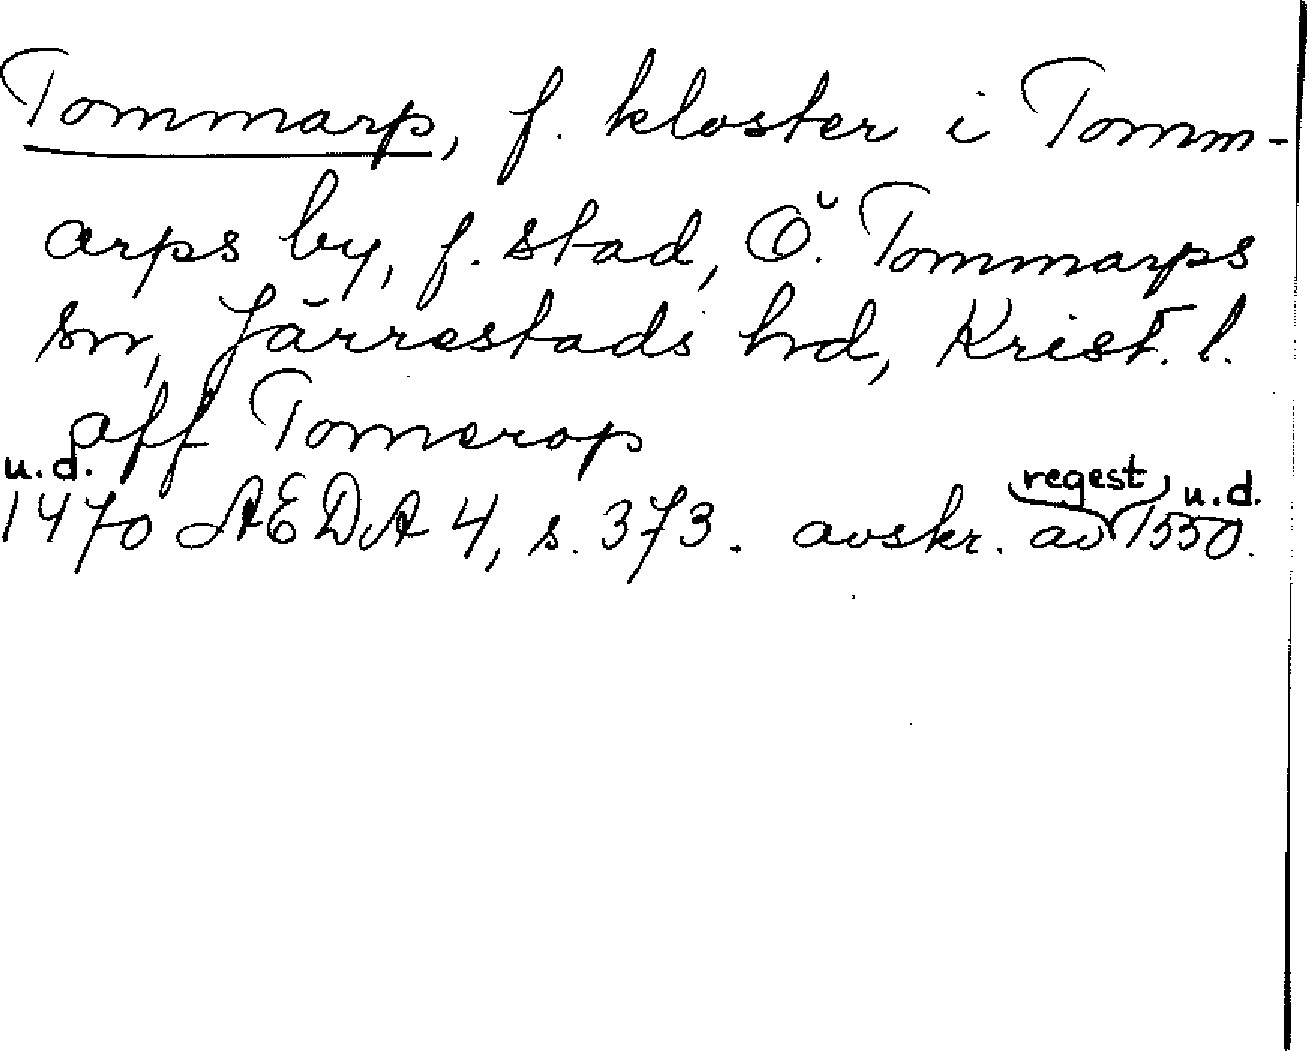 Tommarp, f. kloster i Tomm-
arps by, f. stad, Ö. Tommarps
sn, Järrestads hd, Krist. l.
aff Tomerop
u.d. regest u.d.
1470 ÆDA 4, s. 373. avskr. av 1550.